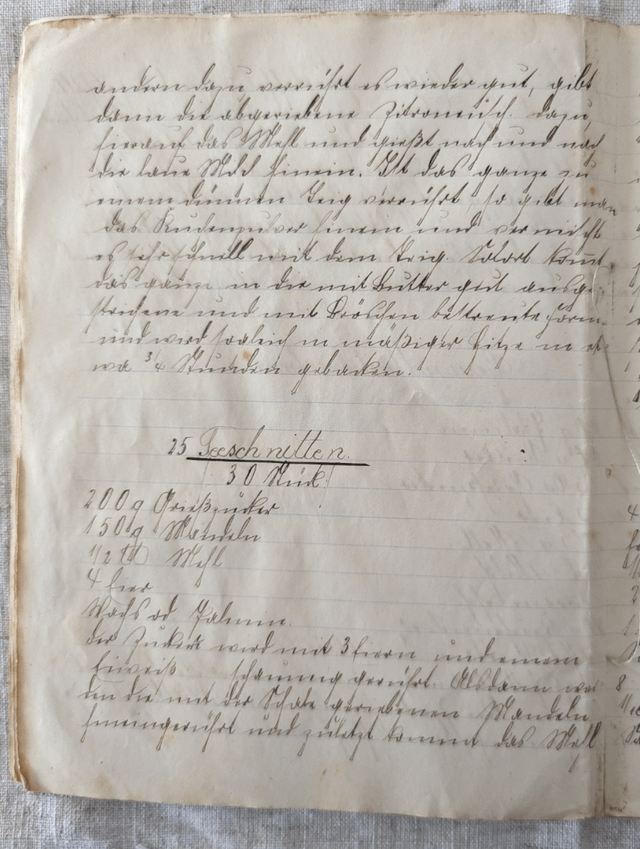 andern dazu verrührt es wieder gut, gibt
dann die abgeriebene Zitronensch. dazu,
hierauf das Mehl und gießt nach und nach
die laue Milch hinein. Ist das ganze zu
einem dünnen Teig verrührt, so gibt man
das Kudenpulver hinein und vermischt
es sehr schnell mit dem Teig. Sofort kommt
das ganze in die mit Butter gut ausge-
strichene und mit Bröschen bestreute Form
und wird sogleich in mäßiger Hitze in et-
wa 3/4 Stunden gebacken.
25 Teeschnitten.
(30 Stück)
200g Grießzucker
150g Mandeln
1/2 Mehl
4 Eier
Wachs od. Palmin.
Der Zucker wird mit 3 Eiern und einem
Eiweiß schaumig gerührt. Alsdann wer-
den die mit der Schale geriebenen Mandeln
hineingerührt und zuletzt kommt das Mehl